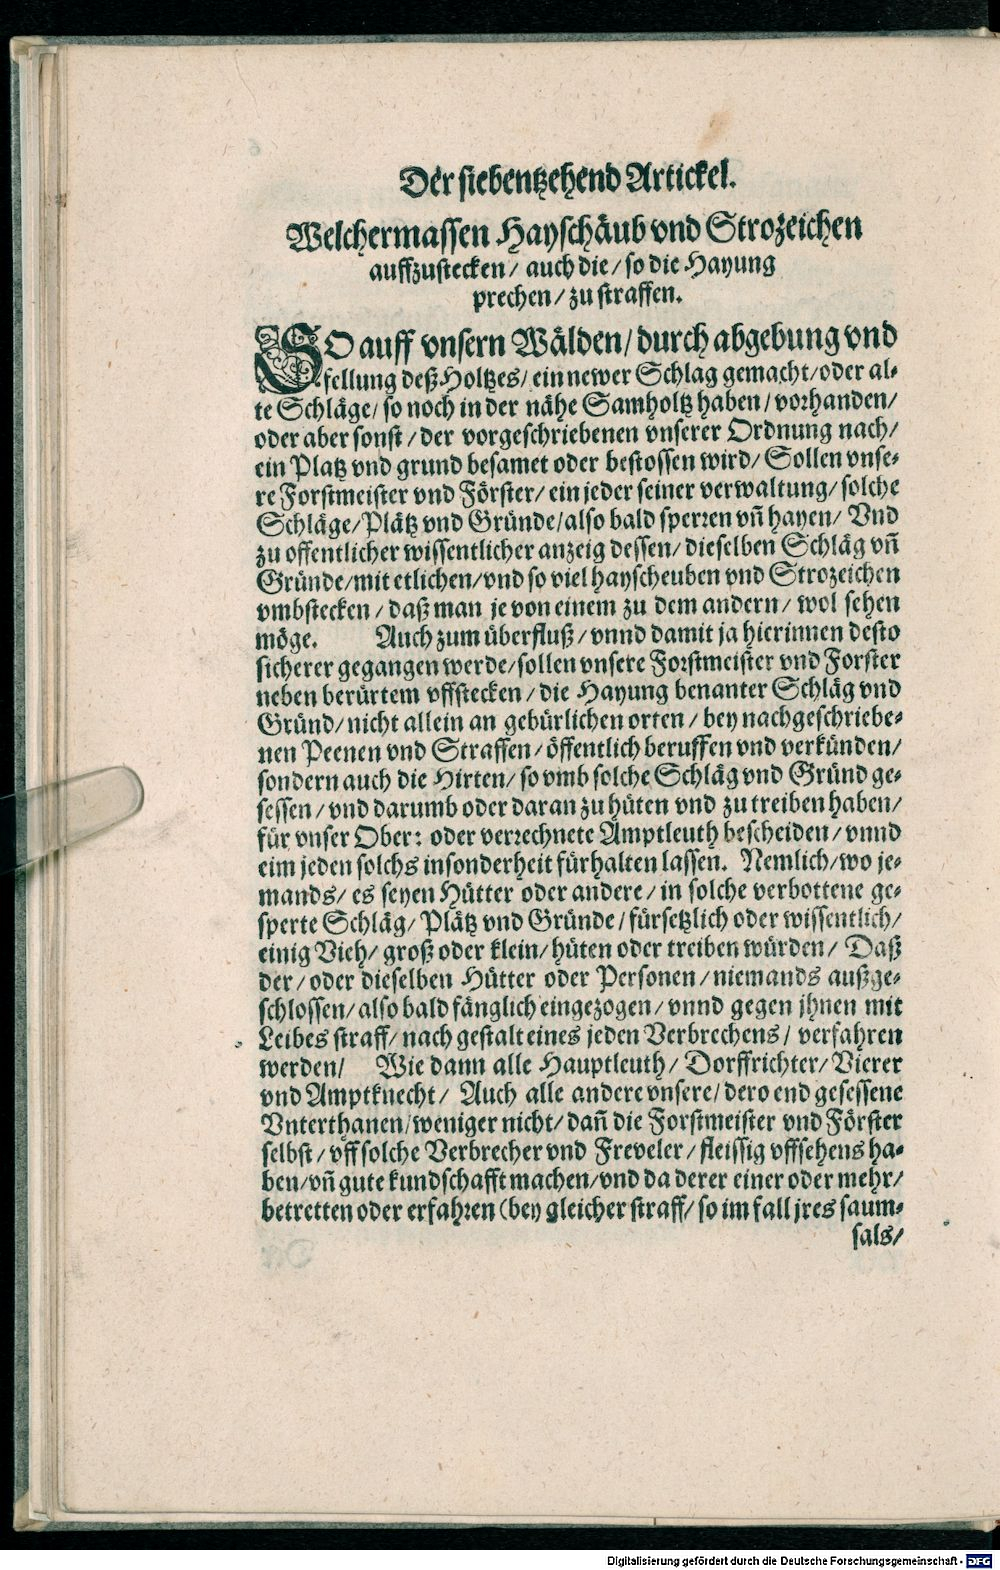 Der siebentzehend Artickel.
Welchermassen Hayschäub vnd Strozeichen
auffzustecken/ auch die/ so die Hayung
prechen/ zu straffen.
SO auff vnsern Wälden/ durch abgebung vnd
fellung deß Holtzes/ ein newer Schlag gemacht/ oder al-
te Schläge/ so noch in der nähe Samholtz haben/ vorhanden/
oder aber sonst/ der vorgeschriebenen vnserer Ordnung nach/
ein Platz vnd grund besamet oder bestossen wird/ Sollen vnse-
re Forstmeister vnd Förster/ ein jeder seiner verwaltung/ solche
Schläge/ Plätz vnd Gründe/ also bald sperren vñ hayen/ Vnd
zu offentlicher wissentlicher anzeig dessen/ dieselben Schläg vñ
Gründe/ mit etlichen/ vnd so viel hayscheuben vnd Strozeichen
vmbstecken/ daß man je von einem zu dem andern/ wol sehen
möge. Auch zum überfluß/ vnnd damit ja hierinnen desto
sicherer gegangen werde/ sollen vnsere Forstmeister vnd Forster
neben berürtem vffstecken/ die Hayung benanter Schläg vnd
Gründ/ nicht allein an gebürlichen orten/ bey nachgeschriebe-
nen Peenen vnd Straffen/ öffentlich beruffen vnd verkünden/
sondern auch die Hirten/ so vmb solche Schläg vnd Gründ ge-
sessen/ vnd darumb oder daran zu hüten vnd zu treiben haben/
für vnser Ober: oder verrechnete Amptleuth bescheiden/ vnnd
eim jeden solchs insonderheit fürhalten lassen. Nemlich/ wo je-
mands/ es seyen Hütter oder andere/ in solche verbottene ge-
sperte Schläg/ Plätz vnd Gründe/ fürsetzlich oder wissentlich/
einig Vieh/ groß oder klein/ hüten oder treiben würden/ Daß
der/ oder dieselben Hütter oder Personen/ niemands außge-
schlossen/ also bald fänglich eingezogen/ vnnd gegen jhnen mit
Leibes straff/ nach gestalt eines jeden Verbrechens/ verfahren
werden/ Wie dann alle Hauptleuth/ Dorffrichter/ Vierer
vnd Amptknecht/ Auch alle andere vnsere/ dero end gesessene
Vnterthanen/ weniger nicht/ dañ die Forstmeister vnd Förster
selbst/ vff solche Verbrecher vnd Freveler/ fleissig vffsehens ha-
ben/ vñ gute kundschafft machen/ vnd da derer einer oder mehr/
betretten oder erfahren (bey gleicher straff/ so im fall jres saum-
sals/
Digitalisierung gefördert durch die Deutsche Forschungsgemeinschaft - DFG